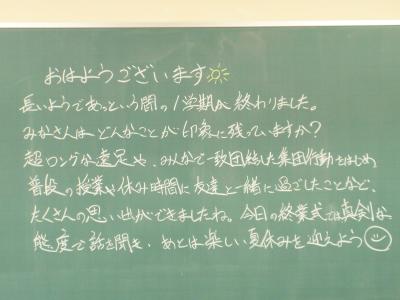 おはようございます
長いようであっという間の1学期が終わりました。
みなさんはどんなことが印象に残っていますか?
超ロングな遠足や、みんなで一致団結した集団行動をはじめ
普段の授業や休み時間に友達と一緒に過ごしたことなど、
たくさんの思い出ができましたね。今日の終業式では真剣な
態度で話を聞き、あとは楽しい夏休みを迎えよう